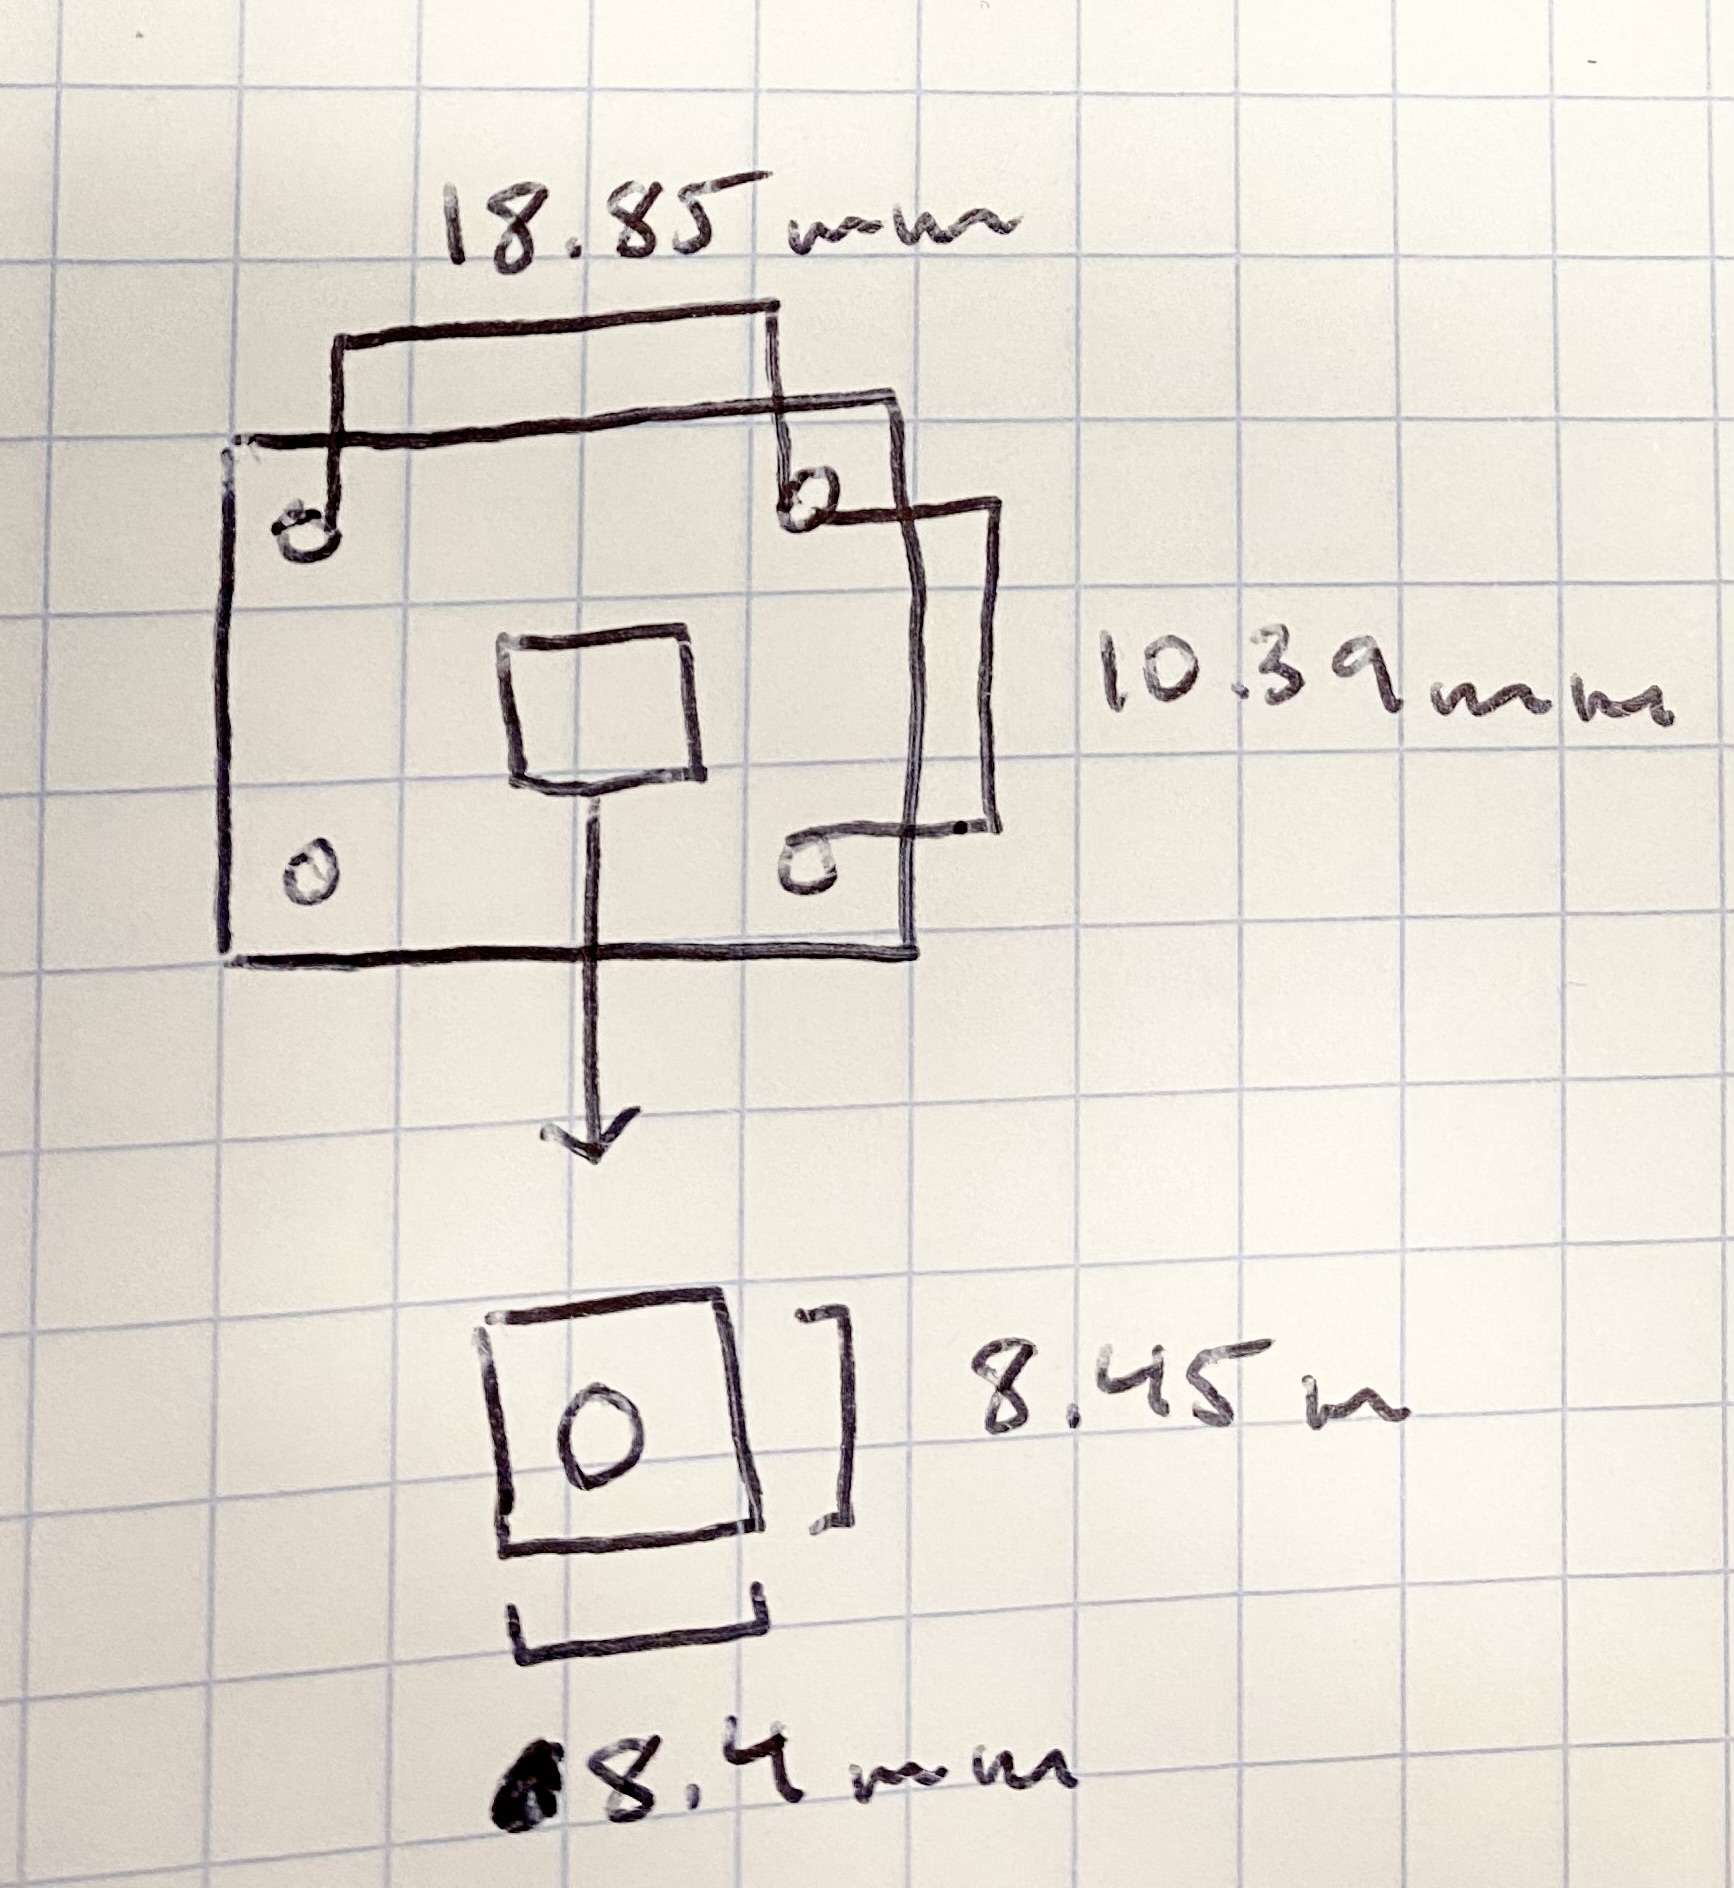 18.85 mm
10.39 mm
8.45 m
8.4 mm